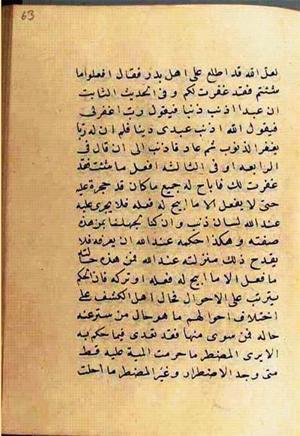 63
لعل الله قد اطلع على اهل بدر فقال افعلوا ما
شئتم فقد غفرت لكم و فى الحديث الثابت
ان عبدا اذنب ذنبا فيقول رب اغفر لى
فيقول الله اذنب عبدى ذنبا فعلم ان له ربا
يغفر الذنوب ثم عاد فاذنب الى ان قال فى
الرابعه او فى الثالثه افعل ما شئت فقد
غفرت لك فاباح له جميع ما كان قد حجره عليه
حتى لا يفعل الا ما ابيح له فعله فلا يجرى عليه
عند الله لسان ذنب و ان كنا نجهل بمن هذه
صفته و هكذا حكمه عند الله ان يعرفه فلا
يقدح ذلك منزلته عند الله فمن هذه حالته
ما فعل الا ما ابيح له فعله او تركه فان الحكم
يترتب على الاحوال فحال اهل الكشف على
اختلاف احوالهم ما هو حال من ستر عنه
حاله فمن سوى بينهما فقد تعدى فيما حكم به
الا يرى المضطر ما حرمت الميتة عليه قط
متى وجد الاضطرار و غير المضطر ما احلت